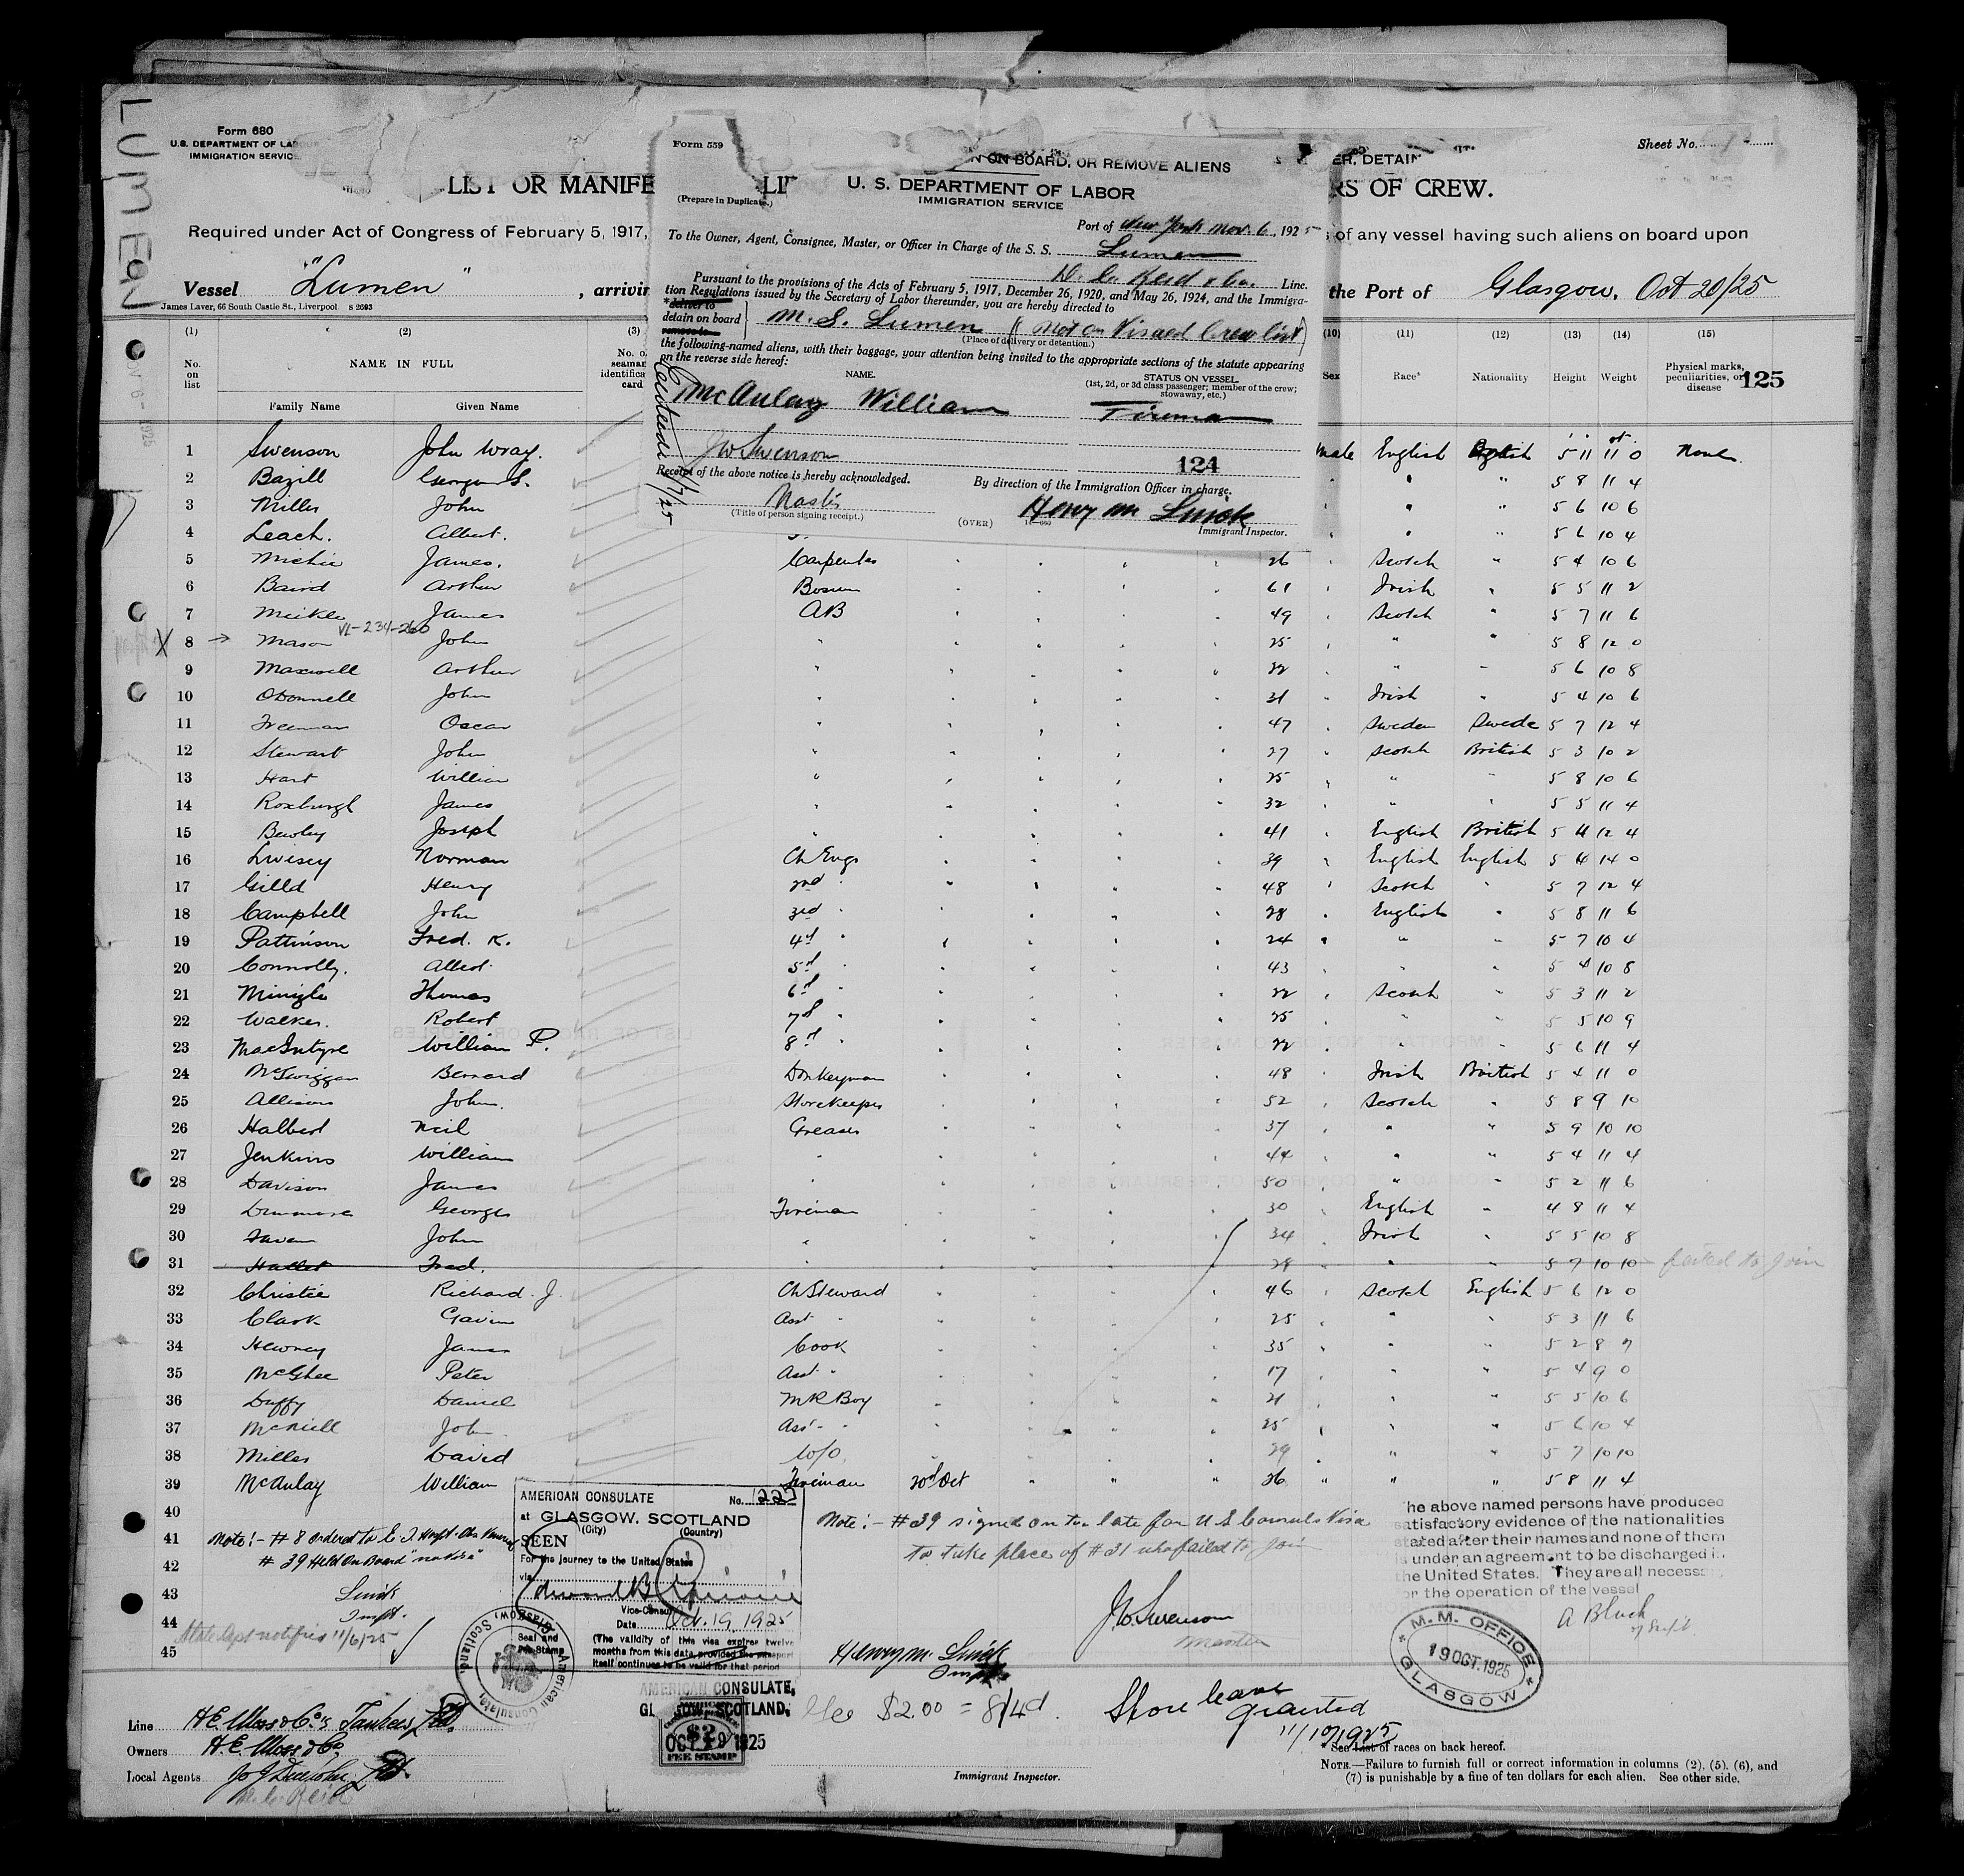 LUMEN
Form 680
U.S. DEPARTMENT OF LABOUR
IMMIGRATION SERVICE
Sheet No. 1
LIST OR MANIFE
RS OF CREW.
Required under Act of Congress of February 5, 1917,
of any vessel having such aliens on board upon
Vessel "Lumen" , arrivin
the Port of Glasgow. Oct 20/25
James Laver, 66 South Castle St., Liverpool s 2693
Form 559
ON BOARD, OR REMOVE ALIENS
ER, DETAIN
U. S. DEPARTMENT OF LABOR
IMMIGRATION SERVICE
(Prepare in Duplicate.)
Port of New York Nov. 6, 1925
To the Owner, Agent, Consignee, Master, or Officer in Charge of the S. S. Lumen
Line.
Pursuant to the provisions of the Acts of February 5, 1917, December 26, 1920, and May 26, 1924, and the Immigra-
tion Regulations issued by the Secretary of Labor thereunder, you are hereby directed to
*deliver to
detain on board
remove to
M. S. Lumen (not on Visaed Crew list)
(Place of delivery or detention.)
the following-named aliens, with their baggage, your attention being invited to the appropriate sections of the statute appearing
on the reverse side hereof:
NAME.
STATUS ON VESSEL.
(1st, 2d, or 3d class passenger; member of the crew;
stowaway, etc.)
McAulay William Fireman
JWSwenson
124
Receipt of the above notice is hereby acknowledged.
By direction of the Immigration Officer in charge.
Master
(Title of person signing receipt.)
(OVER)
Henry M Smick
Immigrant Inspector.
NOV 6 - 1925
(1) (2) (3) (10) (11) (12) (13) (14) (15)
No. on list
NAME IN FULL
Family Name Given Name
Sex Race* Nationality Height Weight
Physical marks, peculiarities, or disease
125
1 Swenson John Wray. Male English British 5 11 11 0 None.
2 Bazill George S. " " 5 8 11 4
3 Miller John " " 5 6 10 6
4 Leach. Albert. " " 5 6 10 4
5 Michie James. Carpenter 26 Scotch " 5 4 10 6
6 Baird Arthur Bosun 61 Irish " 5 5 11 2
7 Meikle James AB 49 Scotch " 5 7 11 6
VL-234-260
X 8 → Mason John " 25 " " 5 8 12 0
9 Maxwell Arthur " 22 " " 5 6 10 8
10 ODonnell John " 31 Irish " 5 4 10 6
11 Freeman Oscar " 47 Sweden Swede 5 7 12 4
12 Stewart John " 27 Scotch British 5 3 10 2
13 Hart William " 25 " " 5 8 10 6
14 Roxburgh James " 32 " " 5 5 11 4
15 Bewley Joseph " 41 English British 5 4 12 4
16 Livisey Norman Ch Engr 39 English English 5 4 14 0
17 Gilld Henry 2nd " 48 Scotch " 5 7 12 4
18 Campbell John 3rd " 28 English " 5 8 11 6
19 Pattinson Fred. K. 4th " 24 " " 5 7 10 4
20 Connolly. Albert 5th " 43 " " 5 4 10 8
21 Thomas 6th " 22 Scotch " 5 3 11 2
22 Walker. Robert 7th " 25 " " 5 5 10 9
23 MacIntyre William P. 8th " 22 " " 5 6 11 4
24 McSwiggan Bernard Donkeyman 48 Irish British 5 4 11 0
25 Allison John. Storekeeper 52 Scotch " 5 8 9 10
26 Halbert Neil Greaser 37 " " 5 9 10 10
27 Jenkins William " 44 " " 5 4 11 4
28 Davison James " 50 " " 5 2 11 6
29 George Fireman 30 English " 4 8 11 4
30 John " 34 Irish " 5 5 10 8
31 Hallet Fred. " 28 " " 5 7 10 10 failed to join
32 Christie Richard. J. Ch Steward 46 Scotch English 5 6 12 0
33 Clark Gavin Asst " 25 " " 5 3 11 6
34 James Cook 35 " " 5 2 8 7
35 McGhee Peter Asst " 17 " " 5 4 9 0
36 Duffy Daniel M R Boy 21 " " 5 5 10 6
37 McNeill John Asst " 25 " " 5 6 10 4
38 Miller David W/O 29 " " 5 7 10 10
39 McAulay William Fireman 20th Oct " " " 26 " " " 5 8 11 4
40
41
42
43
44
45
Note:- # 8 ordered to E. I. Hospt.
# 39 Held On Board "no visa"
Smick
Inspt.
State Dept notified 11/6/25
AMERICAN CONSULATE No. 227
at GLASGOW, SCOTLAND
(City) (Country)
SEEN
For the journey to the United States
via
Edward B
Vice-Consul
Date Oct. 19, 1925
Seal and Fee Stamp
(The validity of this visa expires twelve
months from this date, provided the passport
itself continues to be valid for that period
American Consulate, Glasgow, Scotland.
AMERICAN CONSULATE,
GLASGOW, SCOTLAND.
OCT 19 1925
$2
FEE STAMP
Note:- #39 signed on too late for U S Consuls Visa
to take place of #31 who failed to join
J.W.Swenson
Master
Henry M. Smick
Inspt.
Fee $2.00 = 8/4d.
Shore leave
granted
11/10/1925
The above named persons have produced
satisfactory evidence of the nationalities
stated after their names and none of them
is under an agreement to be discharged in
the United States. They are all necessary
for the operation of the vessel
A Black
M. M. OFFICE
19 OCT. 1925
GLASGOW
Line H E Moss & Co's Tankers Ltd.
Owners H. E. Moss & Co.
Local Agents
Immigrant Inspector.
See List of races on back hereof.
NOTE.—Failure to furnish full or correct information in columns (2), (5), (6), and
(7) is punishable by a fine of ten dollars for each alien. See other side.